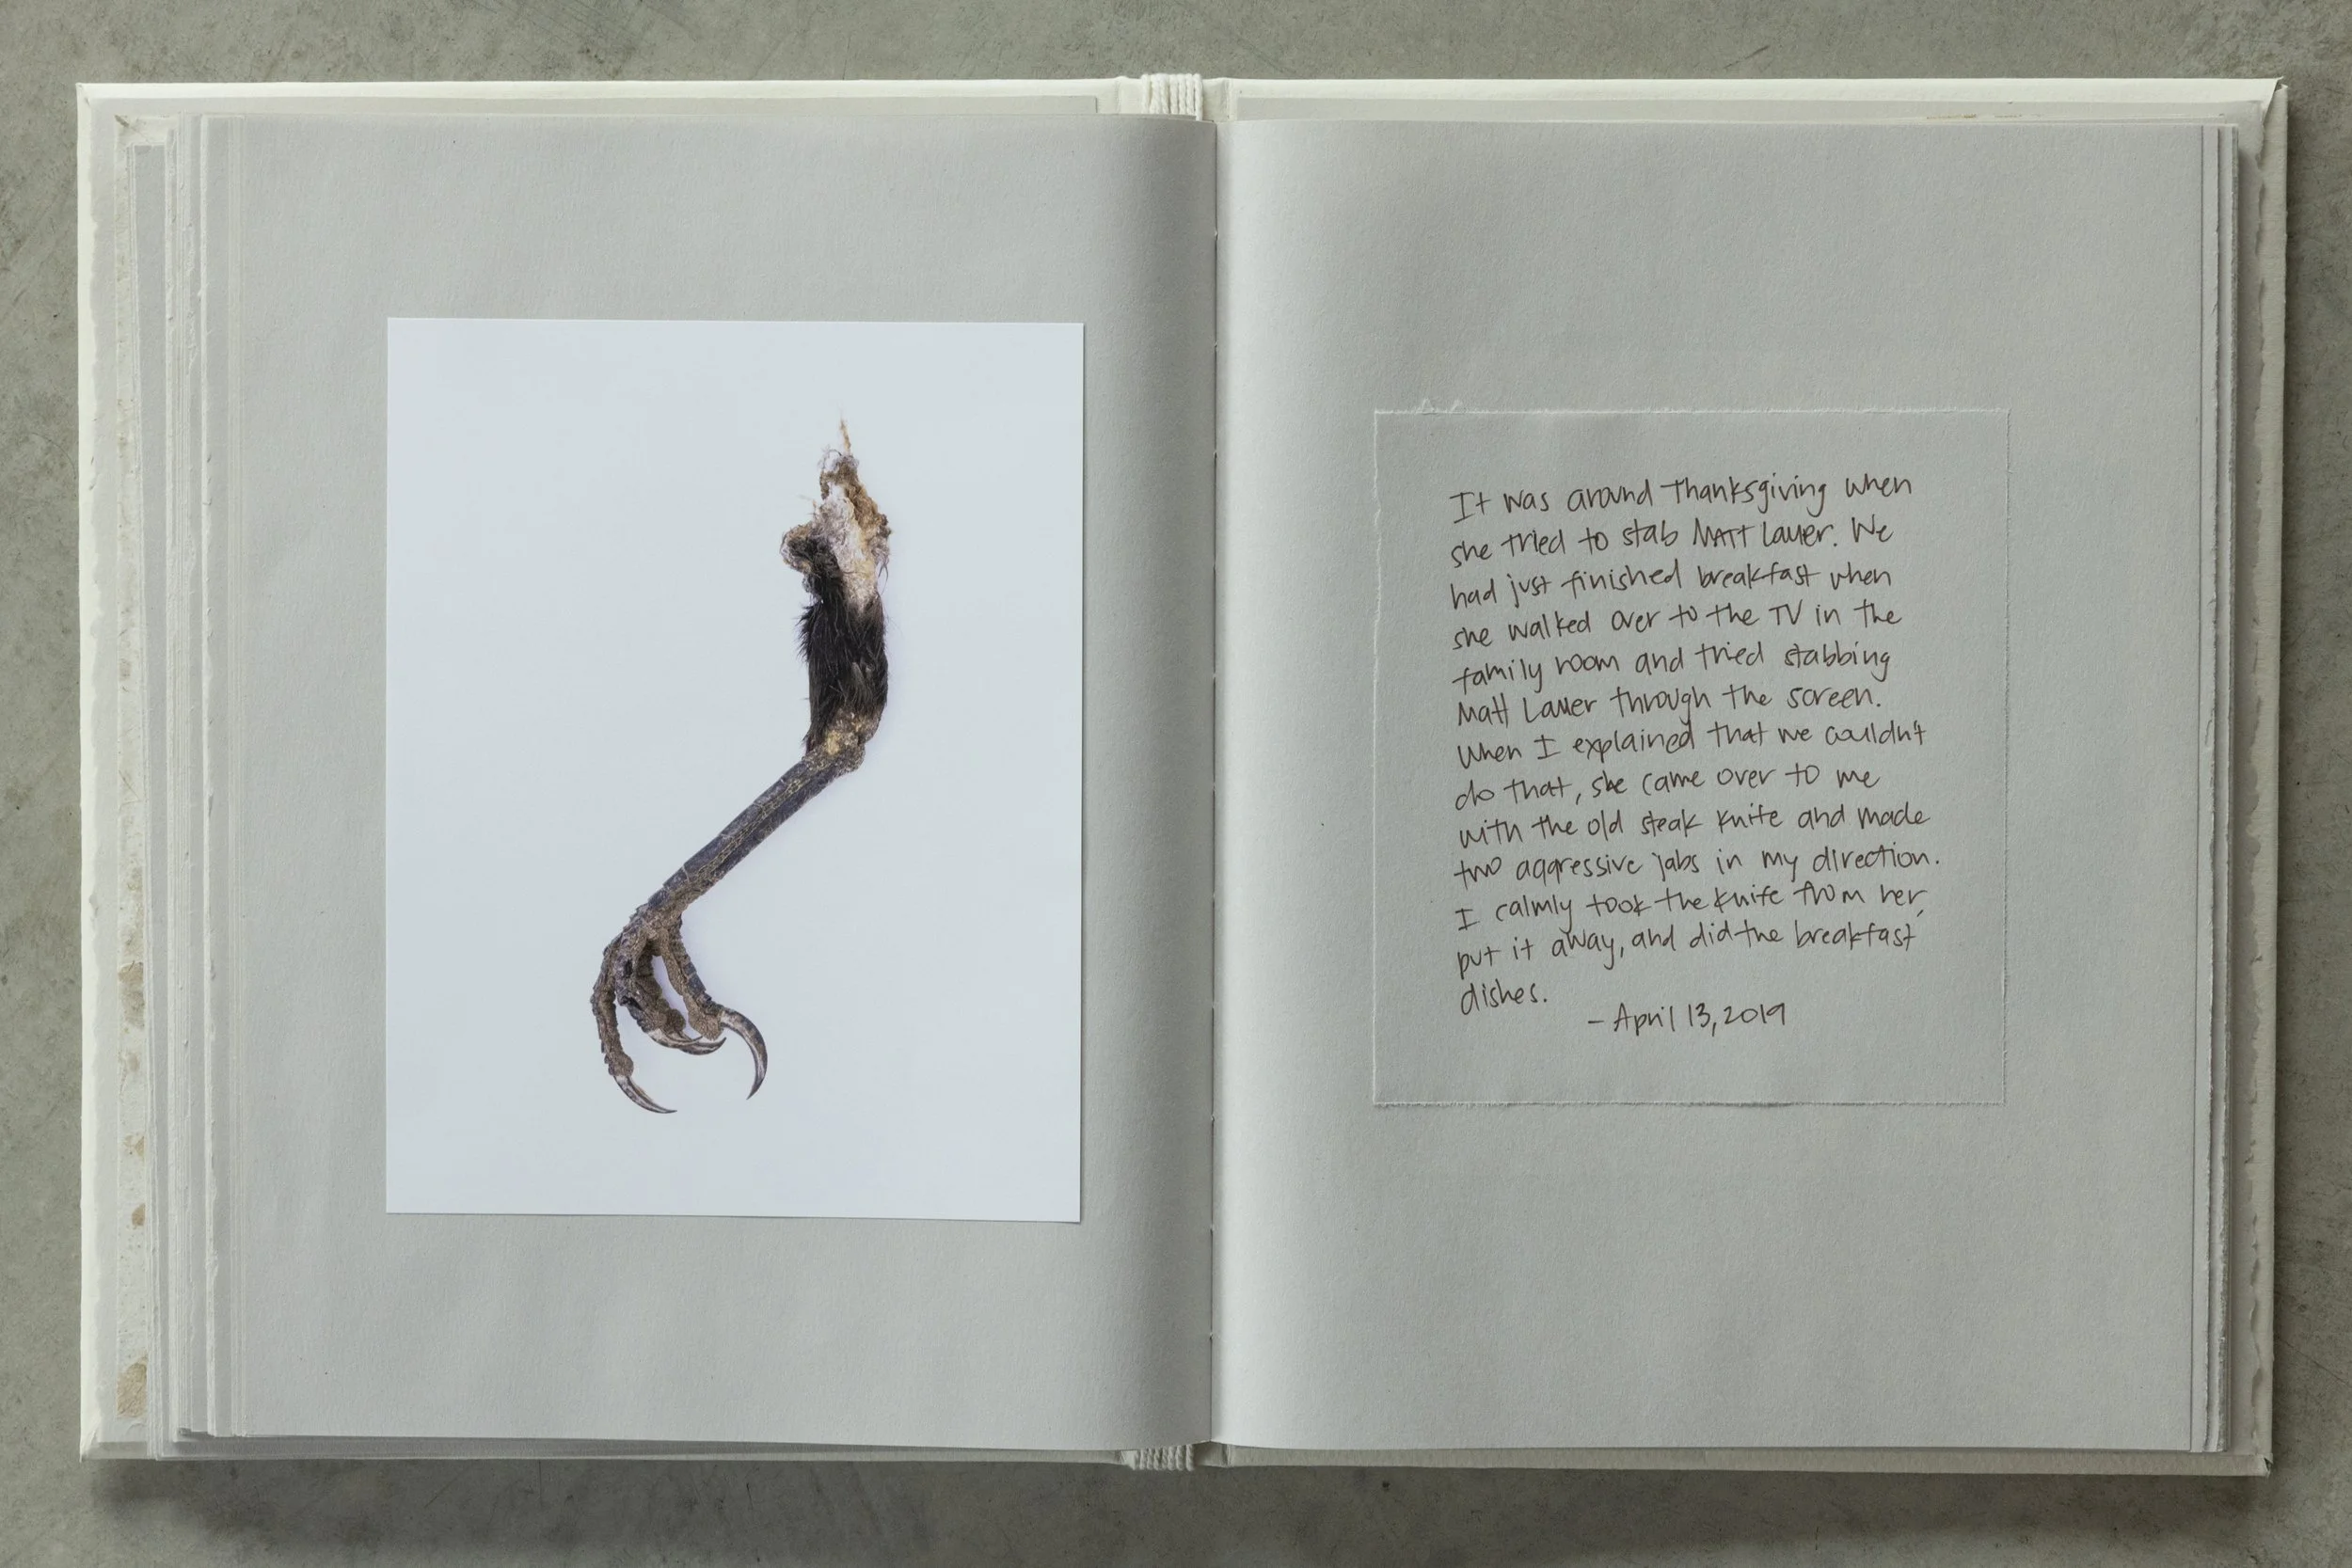 It was around Thanksgiving when
she tried to stab Matt Lauer. We
had just finished breakfast when
she walked over to the TV in the
family room and tried stabbing
Matt Lauer through the screen.
When I explained that we couldn't
do that, she came over to me
with the old steak knife and made
two aggressive jabs in my direction.
I calmly took the knife from her,
put it away, and did the breakfast
dishes.
- April 13, 2019